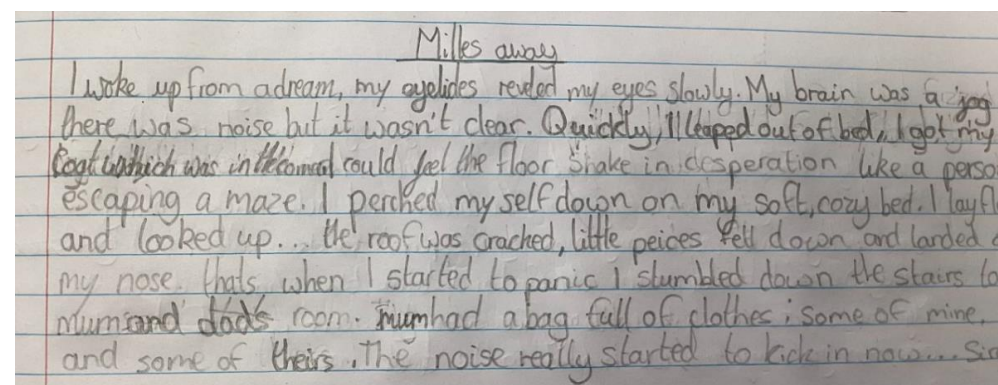 Milles away
I woke up from a dream, my eyelides reveled my eyes slowly. My brain was a jog
there was noise but it wasn't clear. Quickly, I leaped out of bed, I got my
coat which was in the corner I could feel the floor shake in desperation like a perso
escaping a maze. I perched my self down on my soft, cozy bed. I lay fl
and looked up... the roof was cracked, little peices fell down and landed o
my nose. thats when I started to panic I stumbled down the stairs to
mum and dad's room. mum had a bag full of clothes; some of mine,
and some of theirs. The noise really started to kick in now... Sir